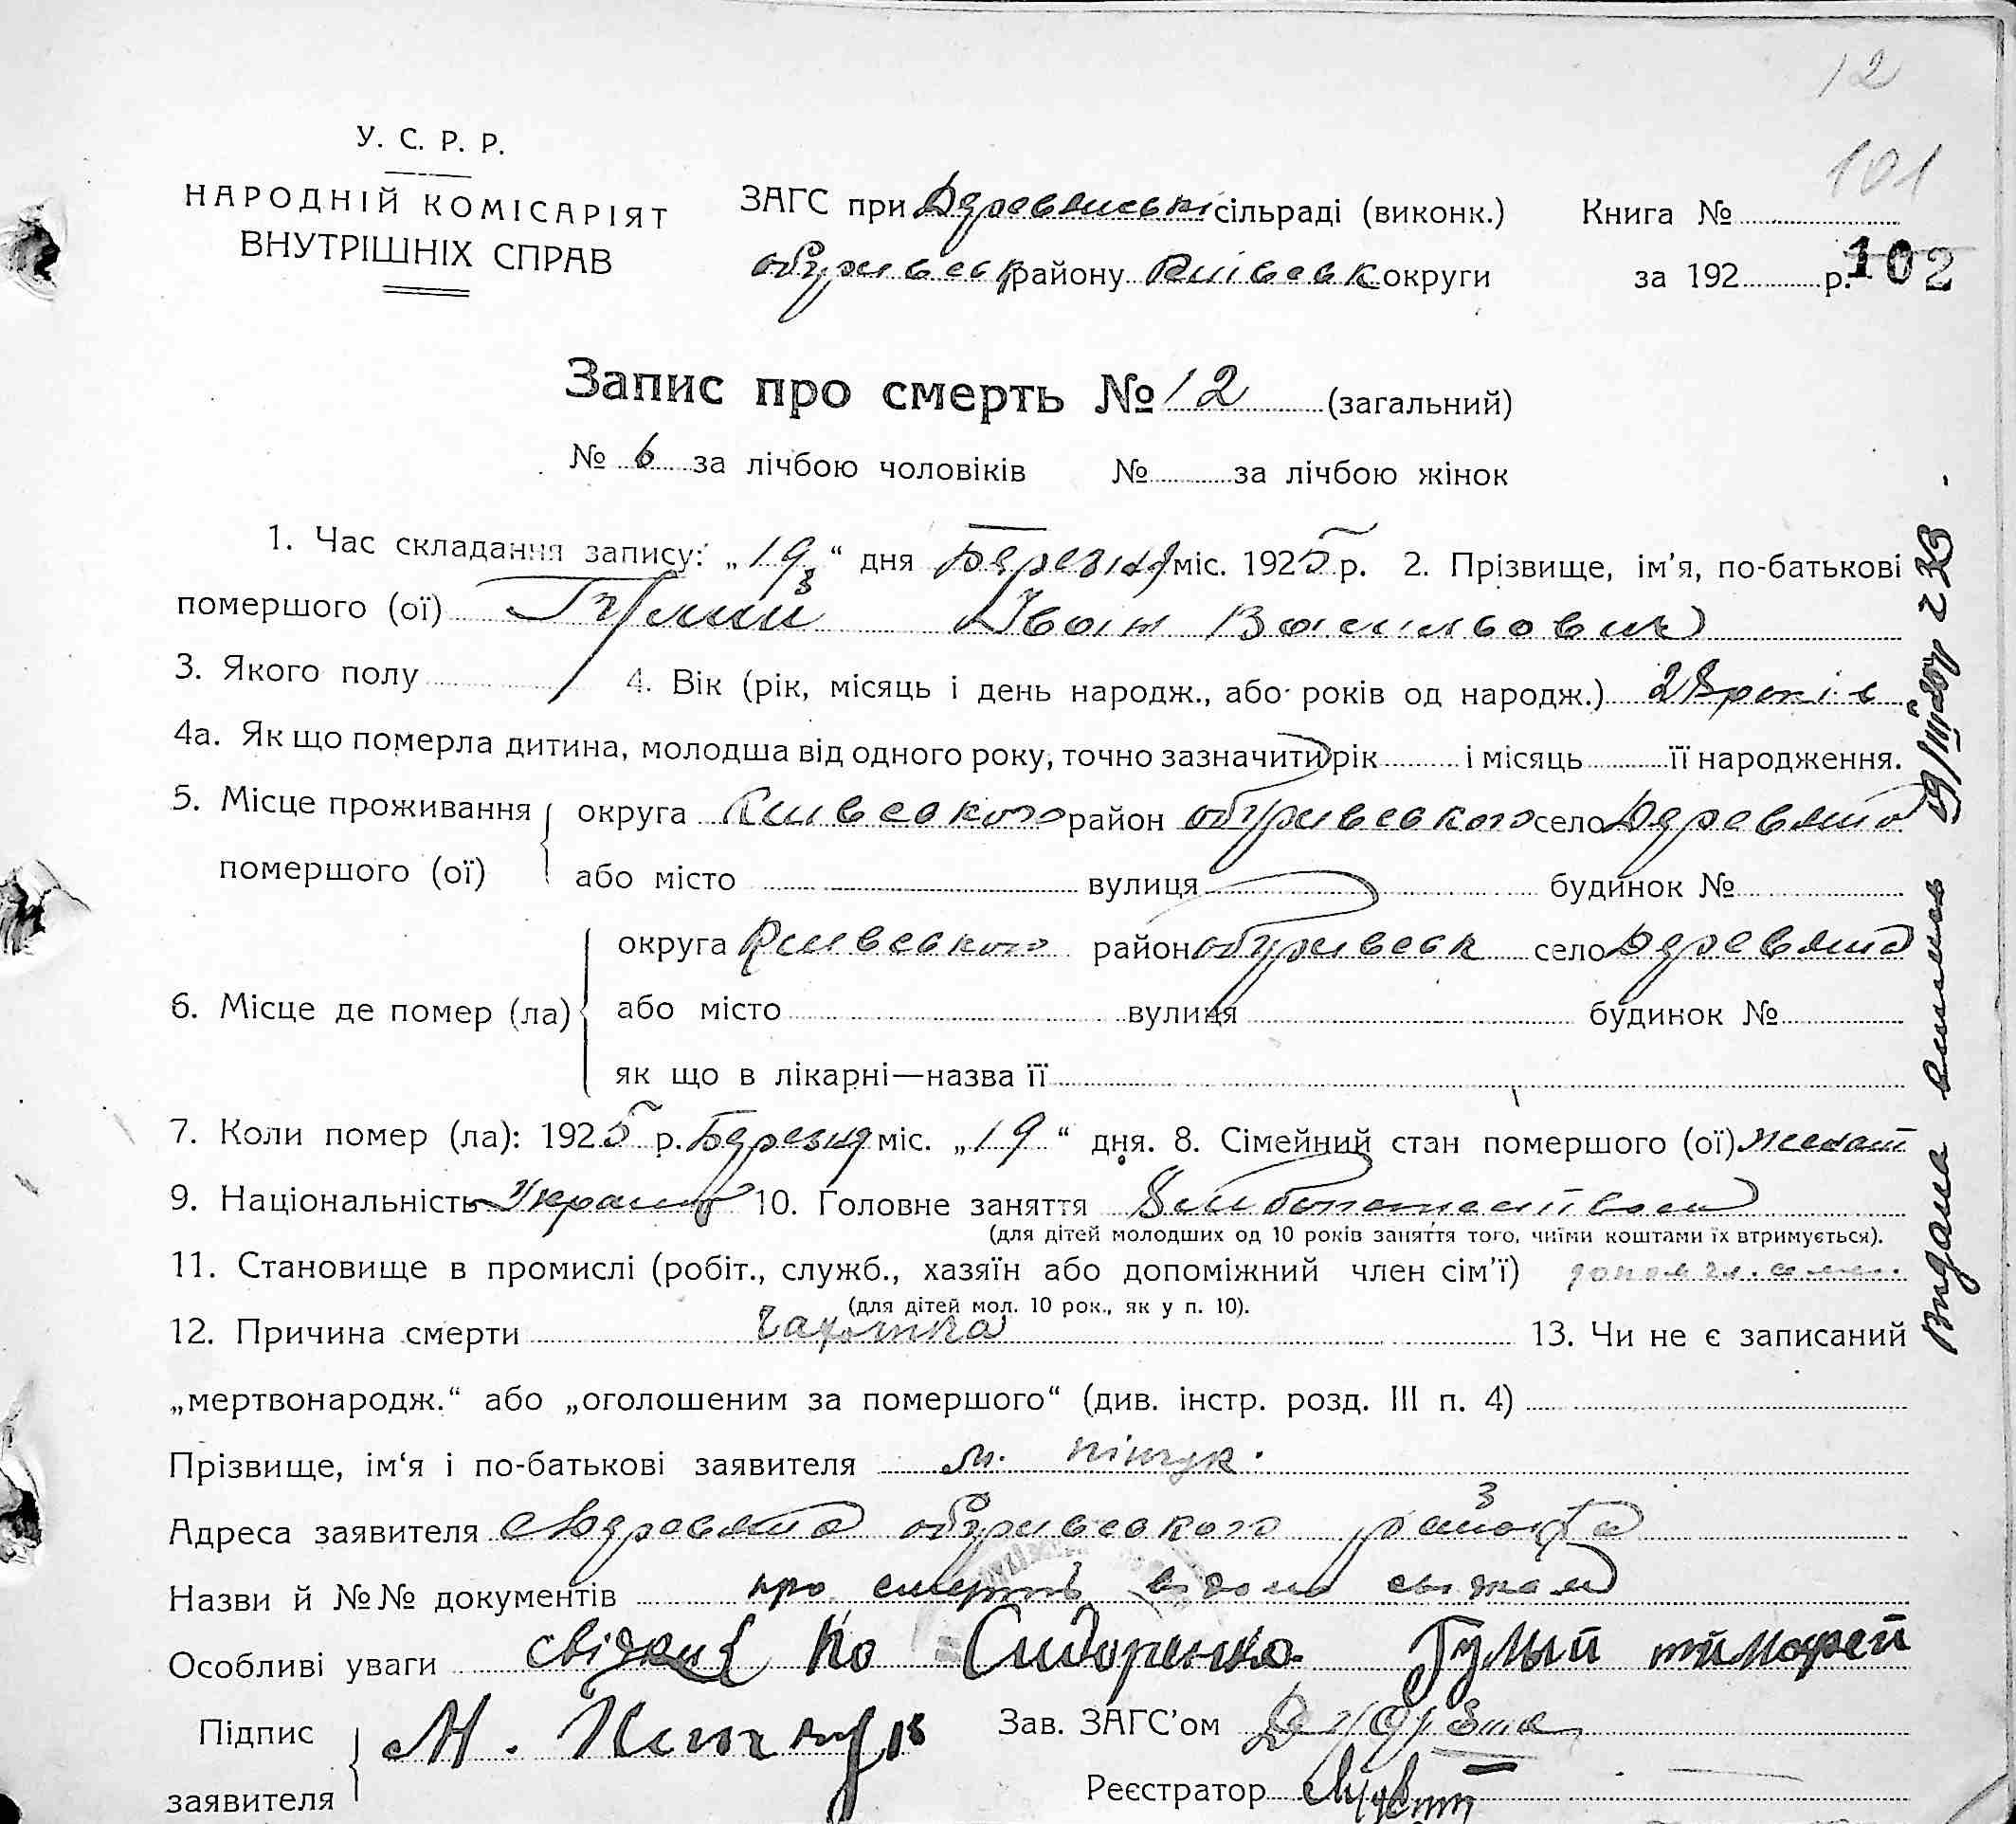 12
101
У. С. Р. Р.
НАРОДНІЙ КОМІСАРІЯТ
ВНУТРІШНІХ СПРАВ
ЗАГС при Деревянські сільраді (виконк.)
обухивськ району Київськ округи
Книга №
за 192 р. 102
Запис про смерть № 12 (загальний)
№ 6 за лічбою чоловіків № за лічбою жінок
1. Час складання запису: „19“ дня Березня міс. 1925 р. 2. Прізвище, ім'я, по-батькові
помершого (ої) Гулий Іван Васильович
3. Якого полу 4. Вік (рік, місяць і день народж., або років од народж.) 28 років
4а. Як що померла дитина, молодша від одного року, точно зазначити рік і місяць її народження.
5. Місце проживання помершого (ої) округа Киівського район обухивського село Деревяна
або місто вулиця будинок №
6. Місце де помер (ла) округа Киівського район обухивськ село Деревяна
або місто вулиця будинок №
як що в лікарні—назва її
7. Коли помер (ла): 1925 р. Березня міс. „19“ дня. 8. Сімейний стан помершого (ої) жонат
9. Національність 10. Головне заняття
(для дітей молодших од 10 років заняття того, чиїми коштами їх втримується).
11. Становище в промислі (робіт., служб., хазяїн або допоміжний член сім'ї) допом чл.
(для дітей мол. 10 рок., як у п. 10).
12. Причина смерти чахотка 13. Чи не є записаний
„мертвонародж.“ або „оголошеним за помершого“ (див. інстр. розд. III п. 4)
Прізвище, ім‘я і по-батькові заявителя м.
Адреса заявителя Деревяна обухивського района
Назви й №№ документів про смерть відомо
Особливі уваги свідки Сидоренко Гулый тимофей
Підпис заявителя М.
Зав. ЗАГС'ом
Реєстратор
Видана 19/III